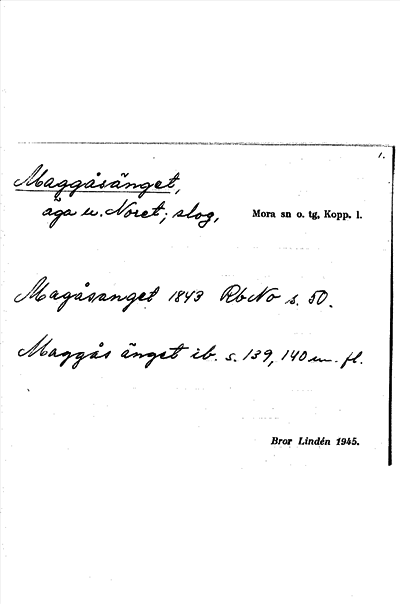 1.
Maggåsänget,
äga u. Noret; slog, Mora sn o. tg, Kopp. l.
Magåsanget 1843 RbNo s. 50.
Maggås änget ib. s. 139, 140 m. fl.
Bror Lindén 1945.